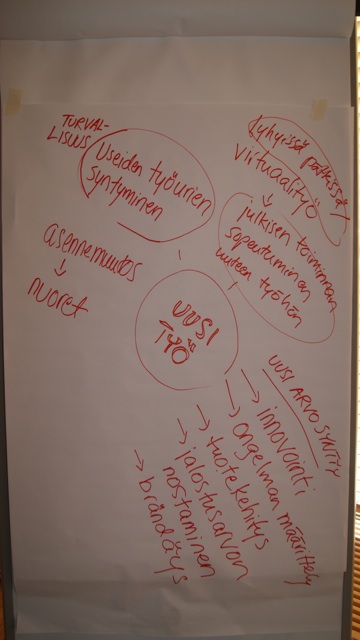 TURVAL-
LISUUS
Useiden työurien
syntyminen
asennemuutos
↓
nuoret
Lyhyissä pätkissä /
virtuaalityö
↓
julkisen toiminnan
sopeutuminen
uuteen työhön
UUSI
TYÖ
UUSI ARVO SYNTYY
→ innovointi
→ ongelman määrittely
→ tuotekehitys
→ jalostusarvon
nostaminen
→ brändäys